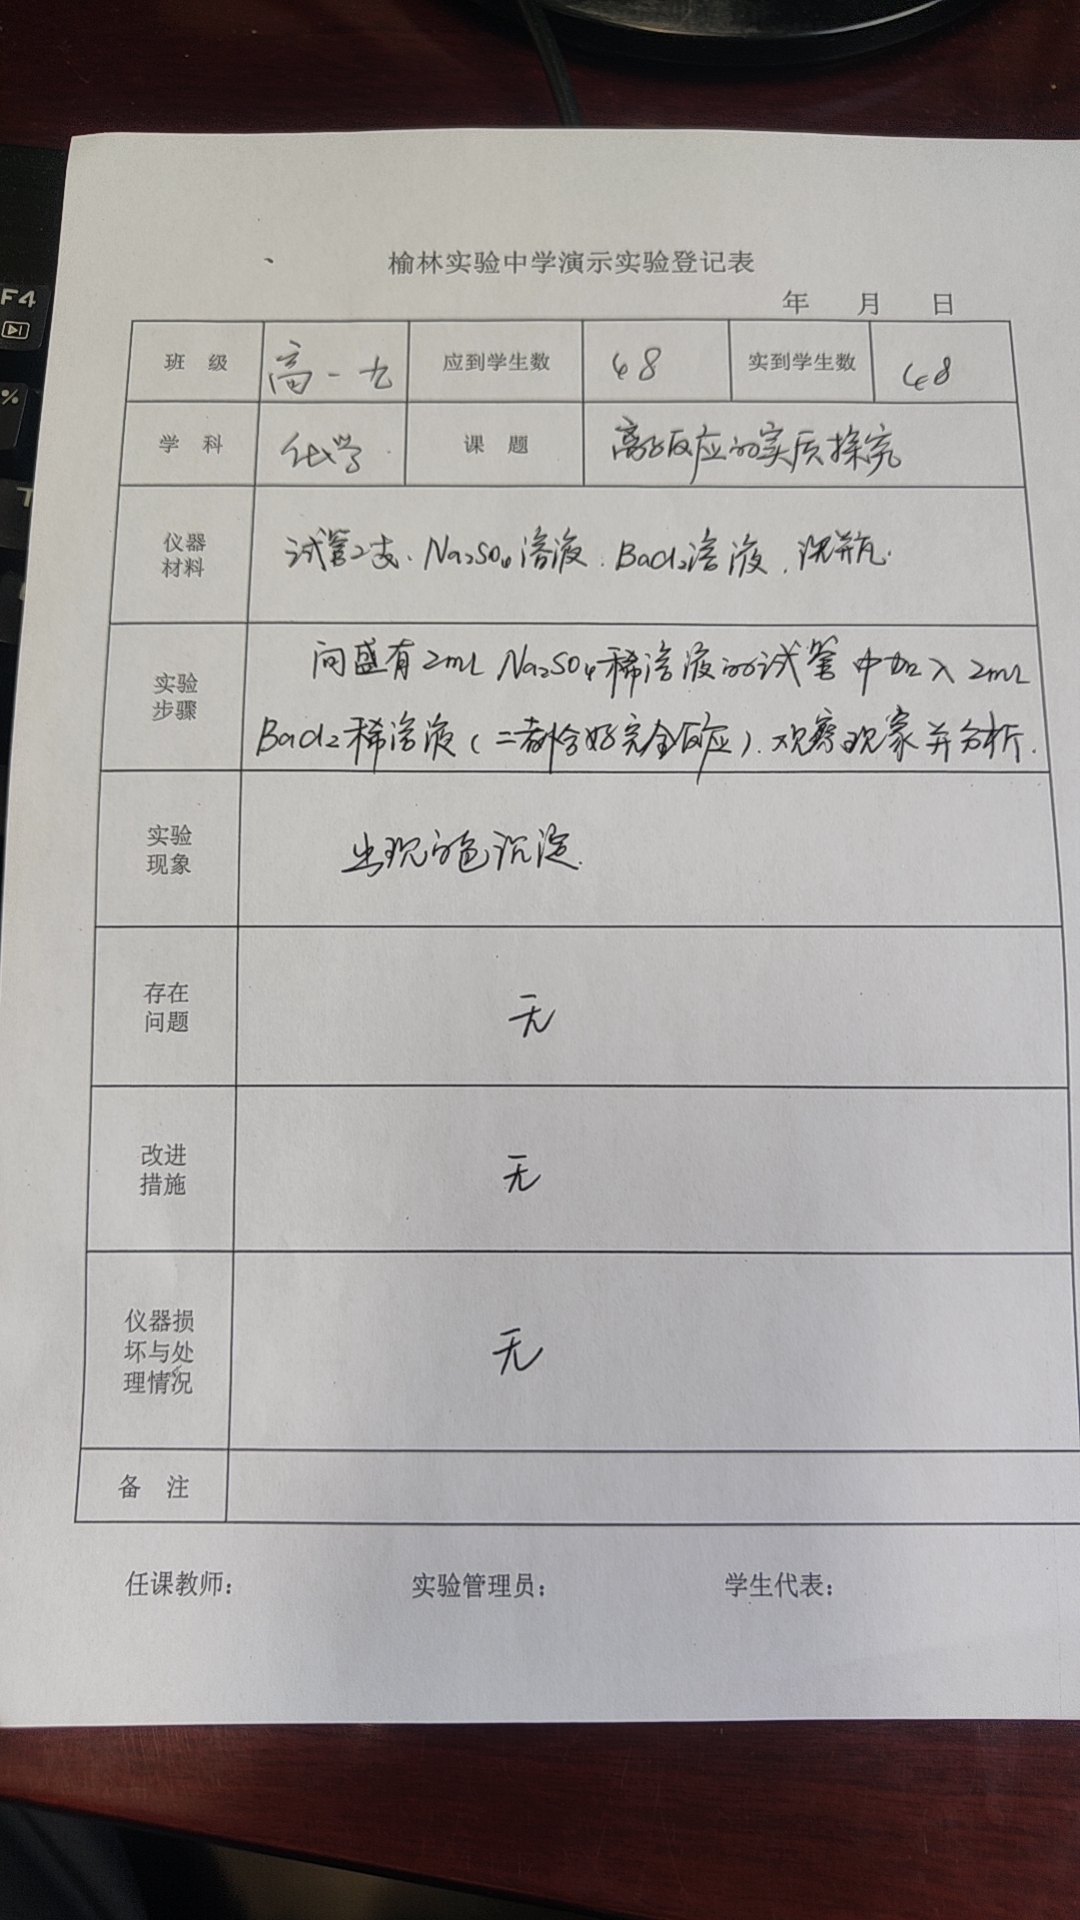 F4
%
T
榆林实验中学演示实验登记表
年 月 日
班 级 高一九 应到学生数 48 实到学生数 48
学 科 化学 课 题 离子反应的实质探究
仪器材料 试管2支、Na₂SO₄溶液、BaCl₂溶液、洗瓶.
实验步骤 向盛有2mL Na₂SO₄稀溶液的试管中加入2mL
BaCl₂稀溶液(二者恰好完全反应).观察现象并分析.
实验现象 出现白色沉淀.
存在问题 无
改进措施 无
仪器损坏与处理情况 无
备 注
任课教师: 实验管理员: 学生代表: